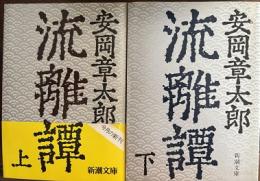 安岡章太郎
流離譚
上
今月の新刊
新潮文庫
安岡章太郎
流離譚
下
新潮文庫